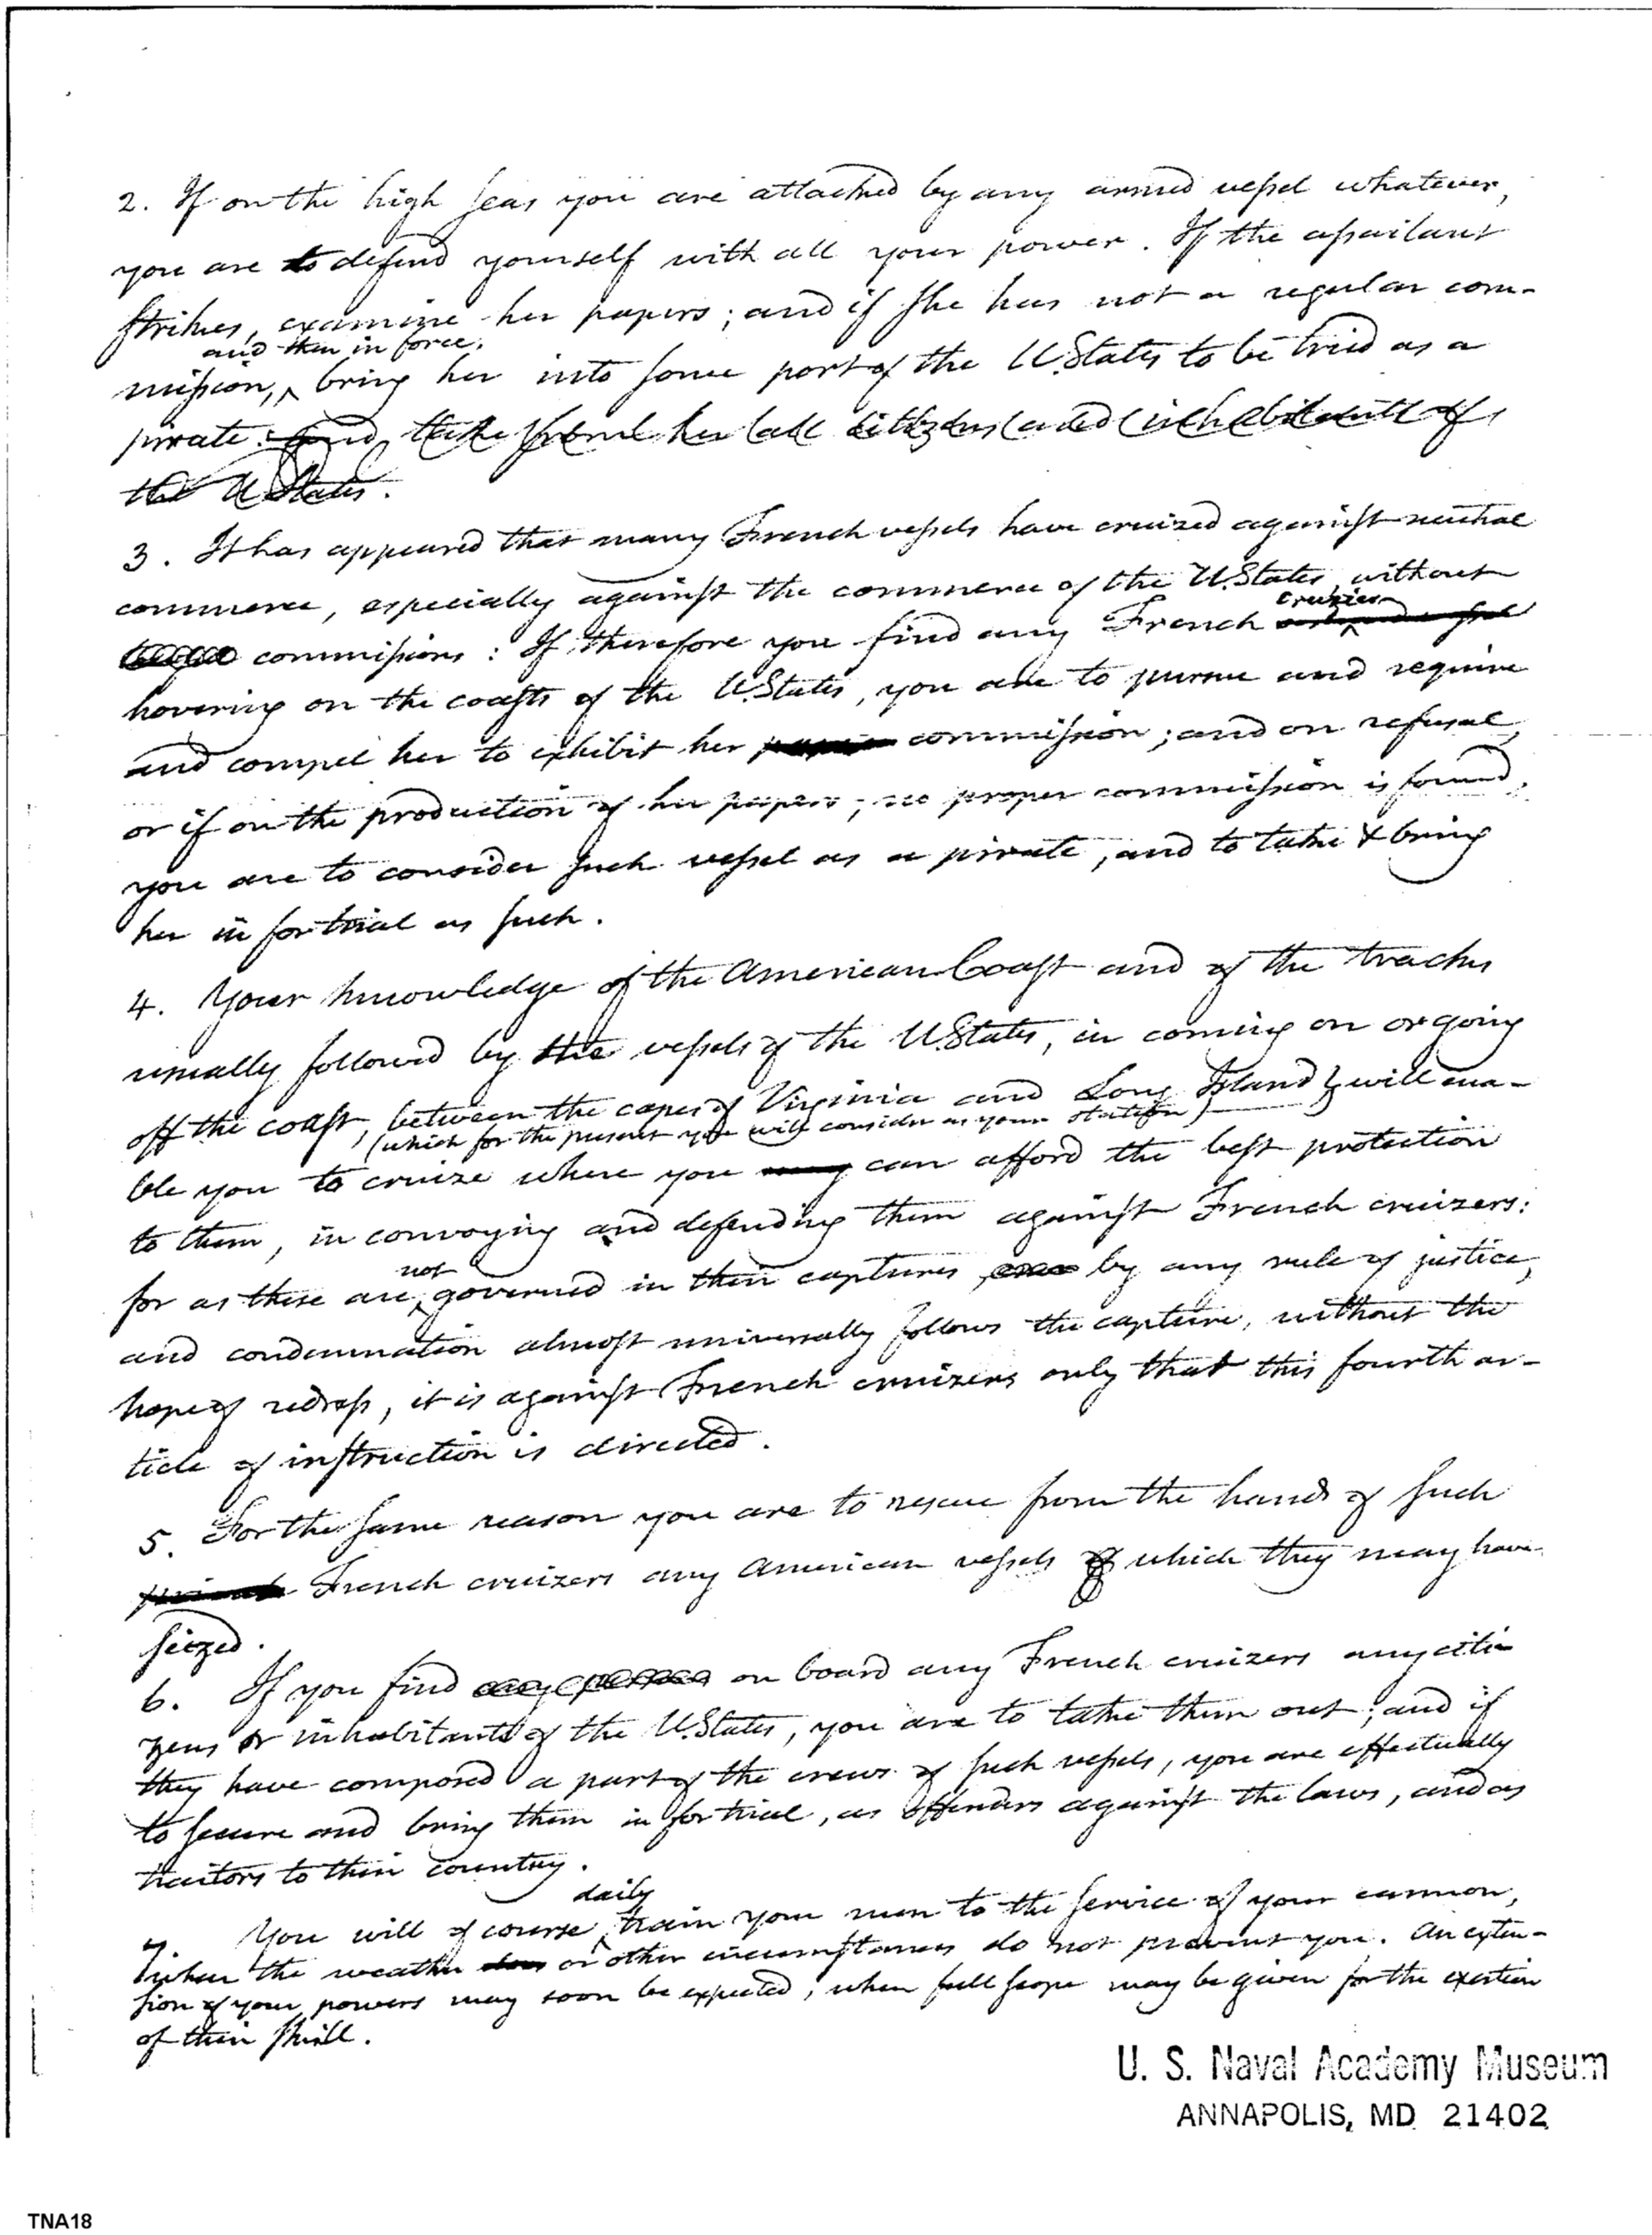 2. If on the high seas you are attacked by any armed vessel whatever,
you are to defend yourself with all your power. If the assailant
strikes, examine her papers; and if she has not a regular com-
and then in force,
mission, ^ bring her into some port of the U.States to be tried as a
pirate. and take from her all citizens and inhabitants of
the U States.
3. It has appeared that many French vessels have cruized against neutral
commerce, especially against the commerce of the U.States, without
commissions: If therefore you find any French
cruizer
hovering on the coasts of the U.States, you are to pursue and require
and compel her to exhibit her papers commission; and on refusal,
or if on the production of her papers, no proper commission is found,
you are to consider such vessel as a pirate, and to take & bring
her in for trial as such.
4. Your knowledge of the American Coast and of the tracks
usually followed by the vessels of the U.States, in coming on or going
off the coast, between the capes of Virginia and Long Island, will ena-
(which for the present you will consider as your station)
ble you to cruize where you may can afford the best protection
to them, in convoying and defending them against French cruizers:
not
for as these are ^ governed in their captures, by any rule of justice,
and condemnation almost universally follows the capture, without the
hope of redress, it is against French cruizers only that this fourth ar-
ticle of instruction is directed.
5. For the same reason you are to rescue from the hands of such
French cruizers any American vessels which they may have
seized.
6. If you find any person on board any French cruizers any citi
zens or inhabitants of the U.States, you are to take them out; and if
they have composed a part of the crews of such vessels, you are effectually
to secure and bring them in for trial, as offenders against the laws, and as
traitors to their country.
daily
7. You will of course ^ train your men to the service of your cannon,
when the weather does or other circumstances do not prevent you. An exten-
sion of your powers may soon be expected, when full scope may be given for the exertion
of their skill.
U. S. Naval Academy Museum
ANNAPOLIS, MD 21402
TNA18